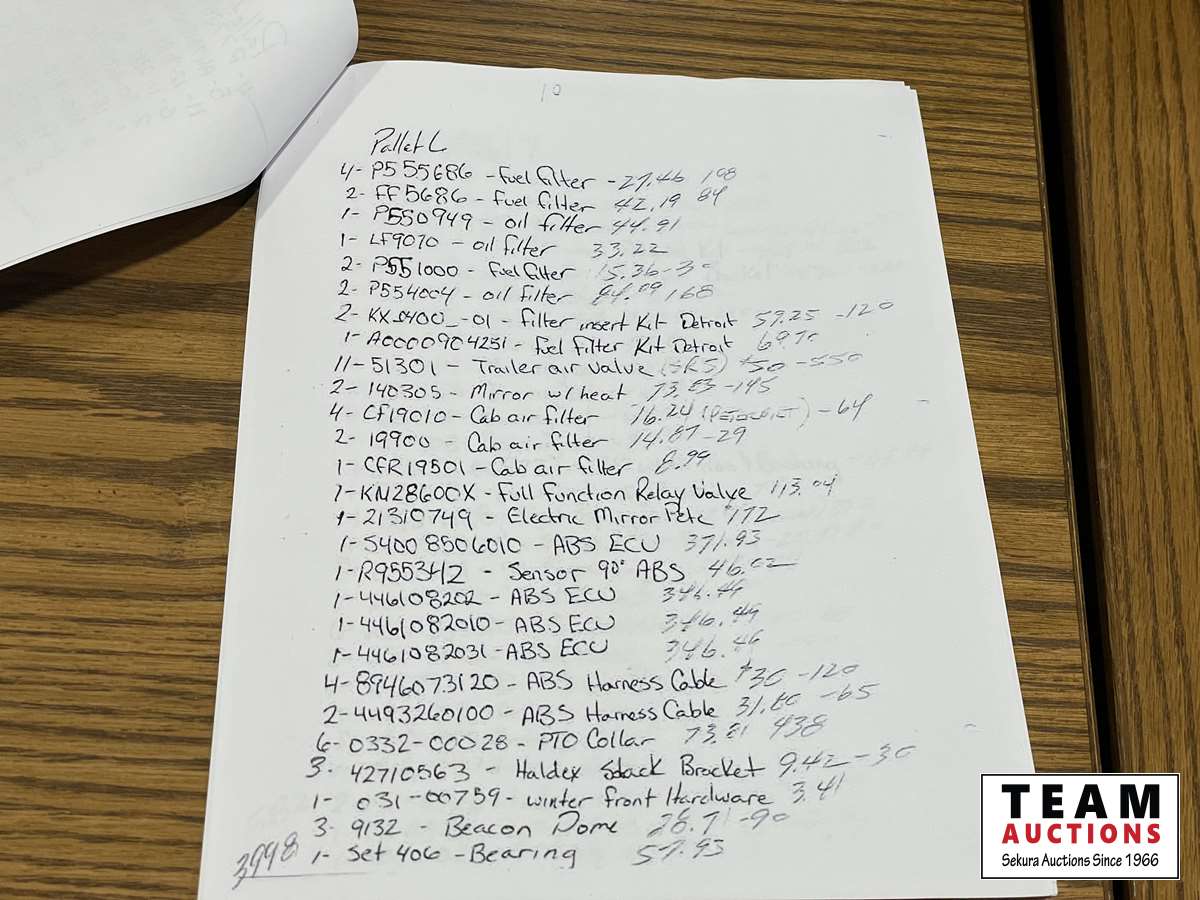 10
Pallet L
4- P555686 - Fuel filter - 27.46 108
2- FF5686 - Fuel filter 42.19 84
1- P550949 - oil filter 44.91
1- LF9070 - oil filter 33.22
2- P551000 - Fuel filter 15.36-30
2- P554004 - oil filter 84.09 168
2- - Filter insert Kit Detroit 59.25 -120
1- A0000904251 - Fuel Filter Kit Detroit
11-51301 - Trailer air valve $50 -550
2- 140305 - Mirror w/heat -145
4- CF19010 - Cab air filter 16.24 -64
2- 19900 - Cab air filter 14.87-29
1- CFR19501 - Cab air filter 8.99
1-KN28600X - Full Function Relay Valve 113.04
1-21310749 - Electric Mirror Pete $172
1-S4008506010 - ABS ECU 371.93
1-R955342 - Sensor 90° ABS 46.02
1-446108202 - ABS ECU
1-4461082010 - ABS ECU 346.49
1-4461082031 -ABS ECU 346.46
4-8946073120 - ABS Harness Cable $30 -120
2-4493260100 - ABS Harness Cable -65
6- 0332-00028 - PTO Collar 438
3- 42710563 - Haldex Bracket 9.42 -30
1- 031-00759 - winter front Hardware 3.41
3- 9132 - Beacon Dome 28.71 -90
1- Set 406 - Bearing 57.93
3,998
TEAM
AUCTIONS
Sekura Auctions Since 1966